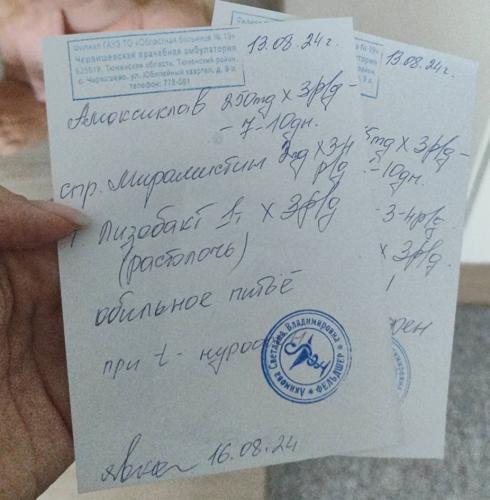 Филиал ГАУЗ ТО «Областная больница № 19»
Червишевская врачебная амбулатория
625519, Тюменская область, Тюменский район,
с. Червишево, ул. Юбилейный квартал, д. 9
телефон: 773-081
13.08.24г.
Амоксиклав 250mg х 3р/д -
- 7-10дн.
спр. Мирамистин 2д х 3
р/д
Лизобакт 1т. х 3р/д
(растолочь)
обильное питьё
при t - нуроф
Акимова Светлана Владимировна
* ФЕЛЬДШЕР *
явка 16.08.24
13.08.24г.
5mg х 3р/д -
-10дн.
- 3-4р/д
х 3р/д.